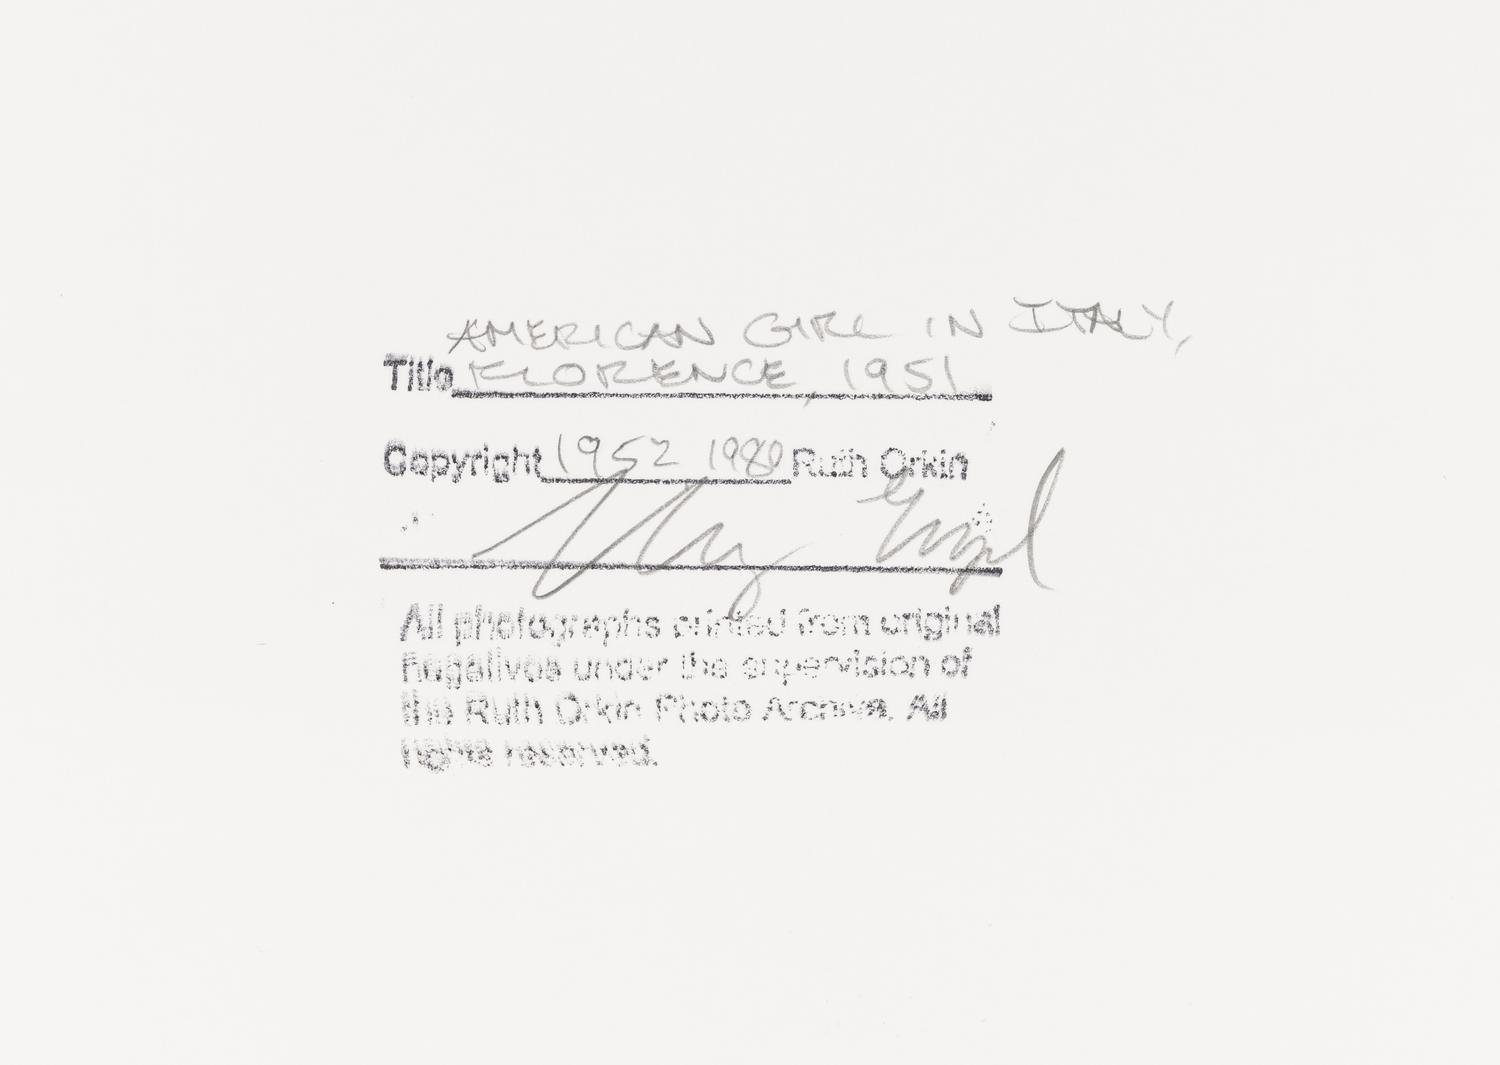 AMERICAN GIRL IN ITALY,
Title FLORENCE, 1951
Copyright 1952 1980 Ruth Orkin
Mary Engel
All photographs printed from original
negatives under the supervision of
the Ruth Orkin Photo Archive. All
rights reserved.